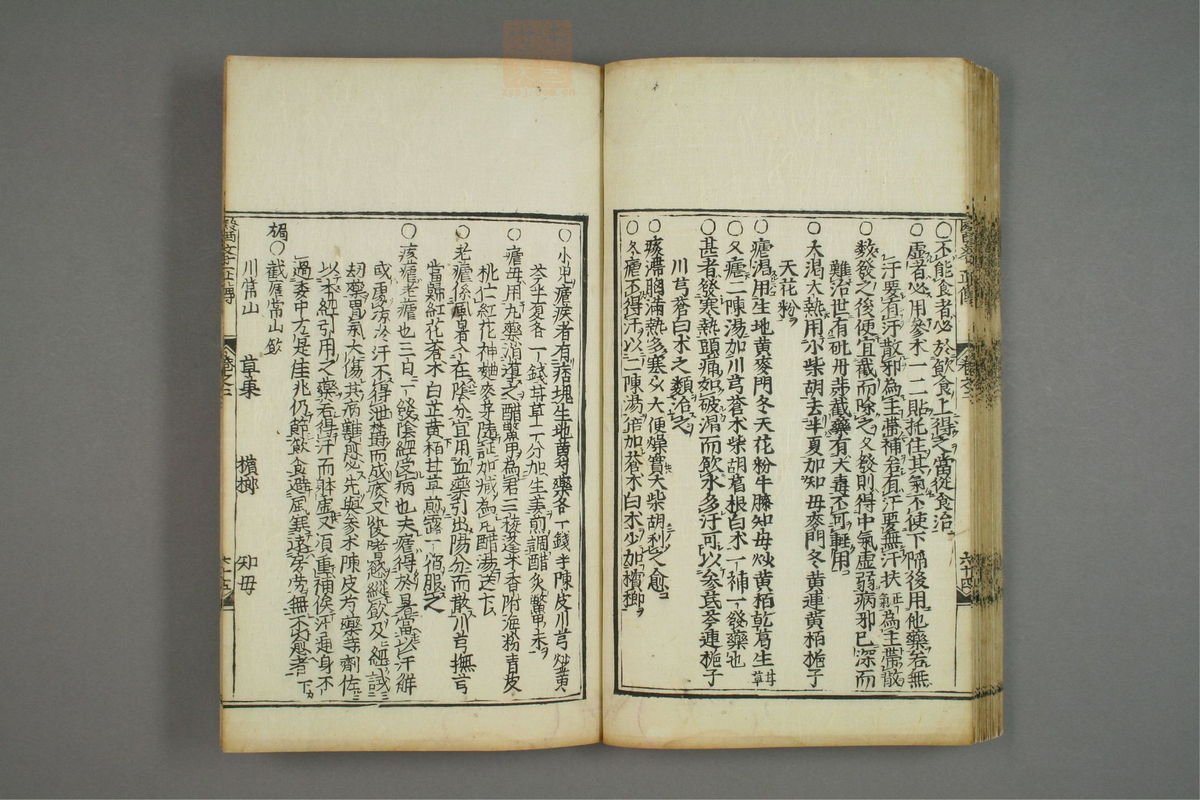 ○不能食者必於飲食上得之當從食治
○虛者必用參朮一二貼托住其氣不使下陷後用他藥若無
汗要有汗散邪為主帶補若有汗要無汗扶正氣為主帶散
○數發之後便宜截而除之久發則得中氣虛弱病邪已深而
難治世有砒丹等截藥有大毒不可輕用
○大渴大熱用小柴胡去半夏加知母麥門冬黃連黃栢梔子
天花粉
○瘧渴用生地黃麥門冬天花粉牛膝知母炒黃栢乾葛生甘草
○久瘧二陳湯加川芎蒼朮柴胡葛根白朮一補一發藥也
○甚者發寒熱頭痛如破渴而飲水多汗可以參芪芩連梔子
川芎蒼白朮之類治之
○痰滯胸滿熱多寒少大便燥實大柴胡利之愈
○冬瘧不得汗以二陳湯倍加蒼朮白朮少加檳榔
醫學正傳
卷之二
六十四
○小兒瘧疾者有痞塊生地黃芍藥各一錢半陳皮川芎炒黃
芩半夏各一錢甘草一分加生姜煎調醋炙鱉甲末
○瘧母用丸藥消導之醋鱉甲為君三稜蓬朮香附海粉青皮
桃仁紅花神麯麥芽隨証加減為丸醋湯送下
○老瘧係風暑入在陰分宜用血藥引出陽分而散川芎撫芎
當歸紅花蒼朮白芷黃栢甘草煎露一宿服之
○痎瘧老瘧也三日一發陰經受病也夫瘧得於暑當以汗解
或
汗不得泄鬱而成痰又
劫藥胃氣大傷其病難愈必先與參朮陳皮芍藥等劑佐
以本經引用之藥若得汗而体虛又須重補俟汗通身
過委中方是佳兆仍節飲食避風寒遠房勞無不愈者
○截瘧常山飲
川常山 草果 檳榔 知母
六十五